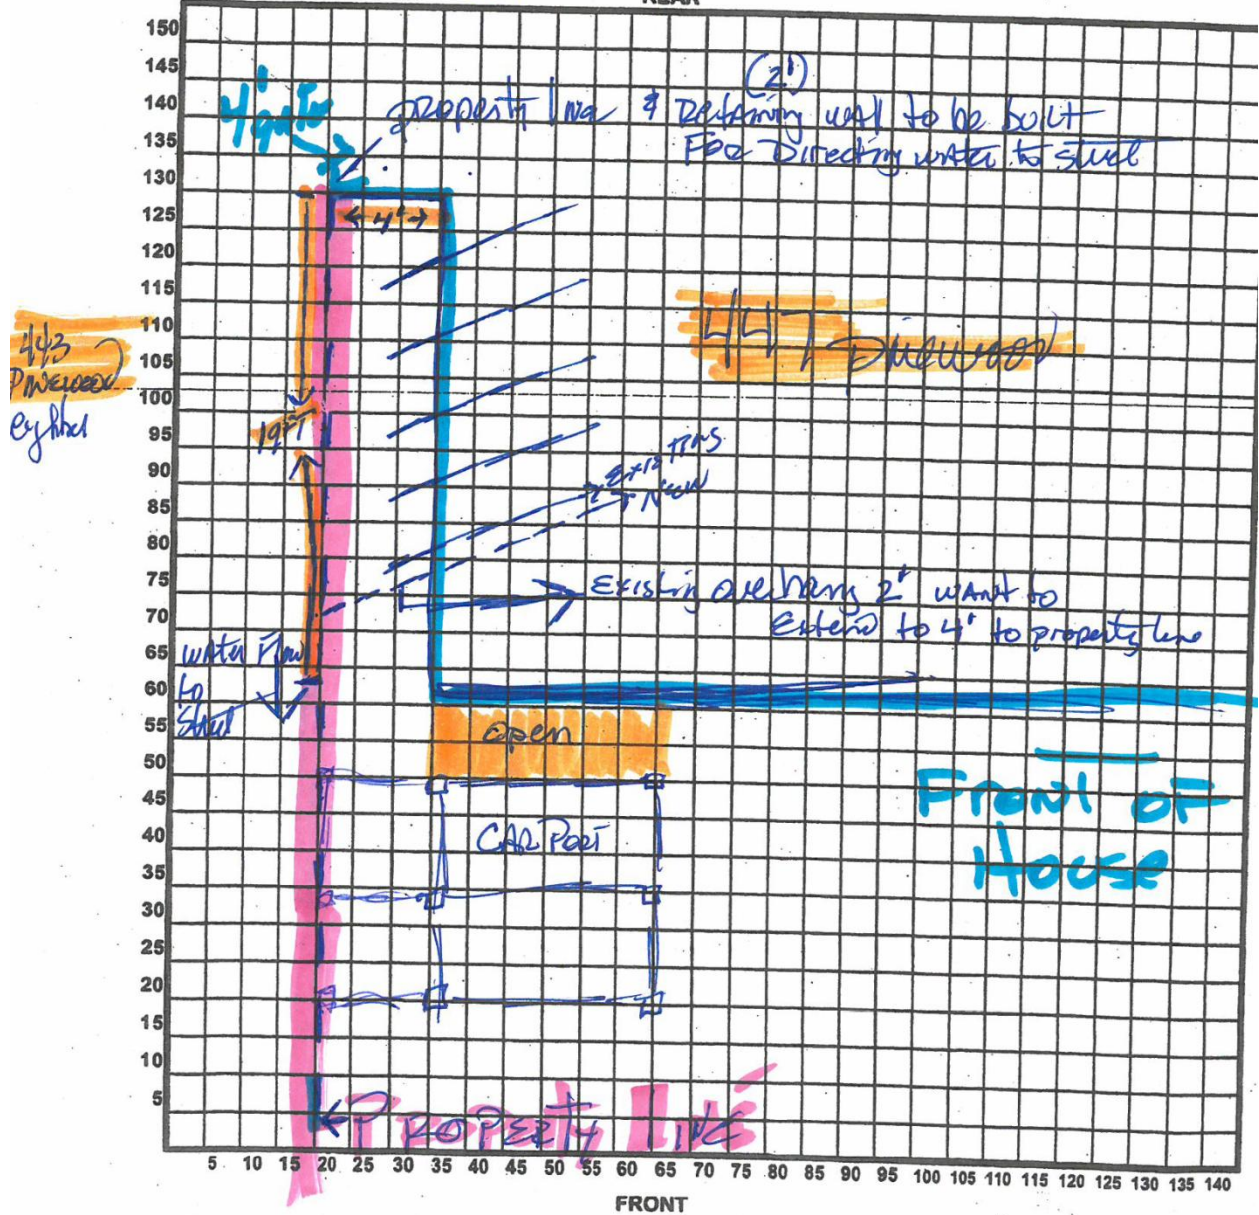 REAR
150
145
140
135
130
125
120
115
110
105
100
95
90
85
80
75
70
65
60
55
50
45
40
35
30
25
20
15
10
5
(2')
property line & Retaining wall to be built
For Directing water to street
4'
443
Pinewood
447 Pinewood
19 FT
Existing
New
Existing overhang 2' want to
extend to 4' to property line
water Flow
to
open
CAR PORT
Front OF
House
PROPERTY LINE
5 10 15 20 25 30 35 40 45 50 55 60 65 70 75 80 85 90 95 100 105 110 115 120 125 130 135 140
FRONT